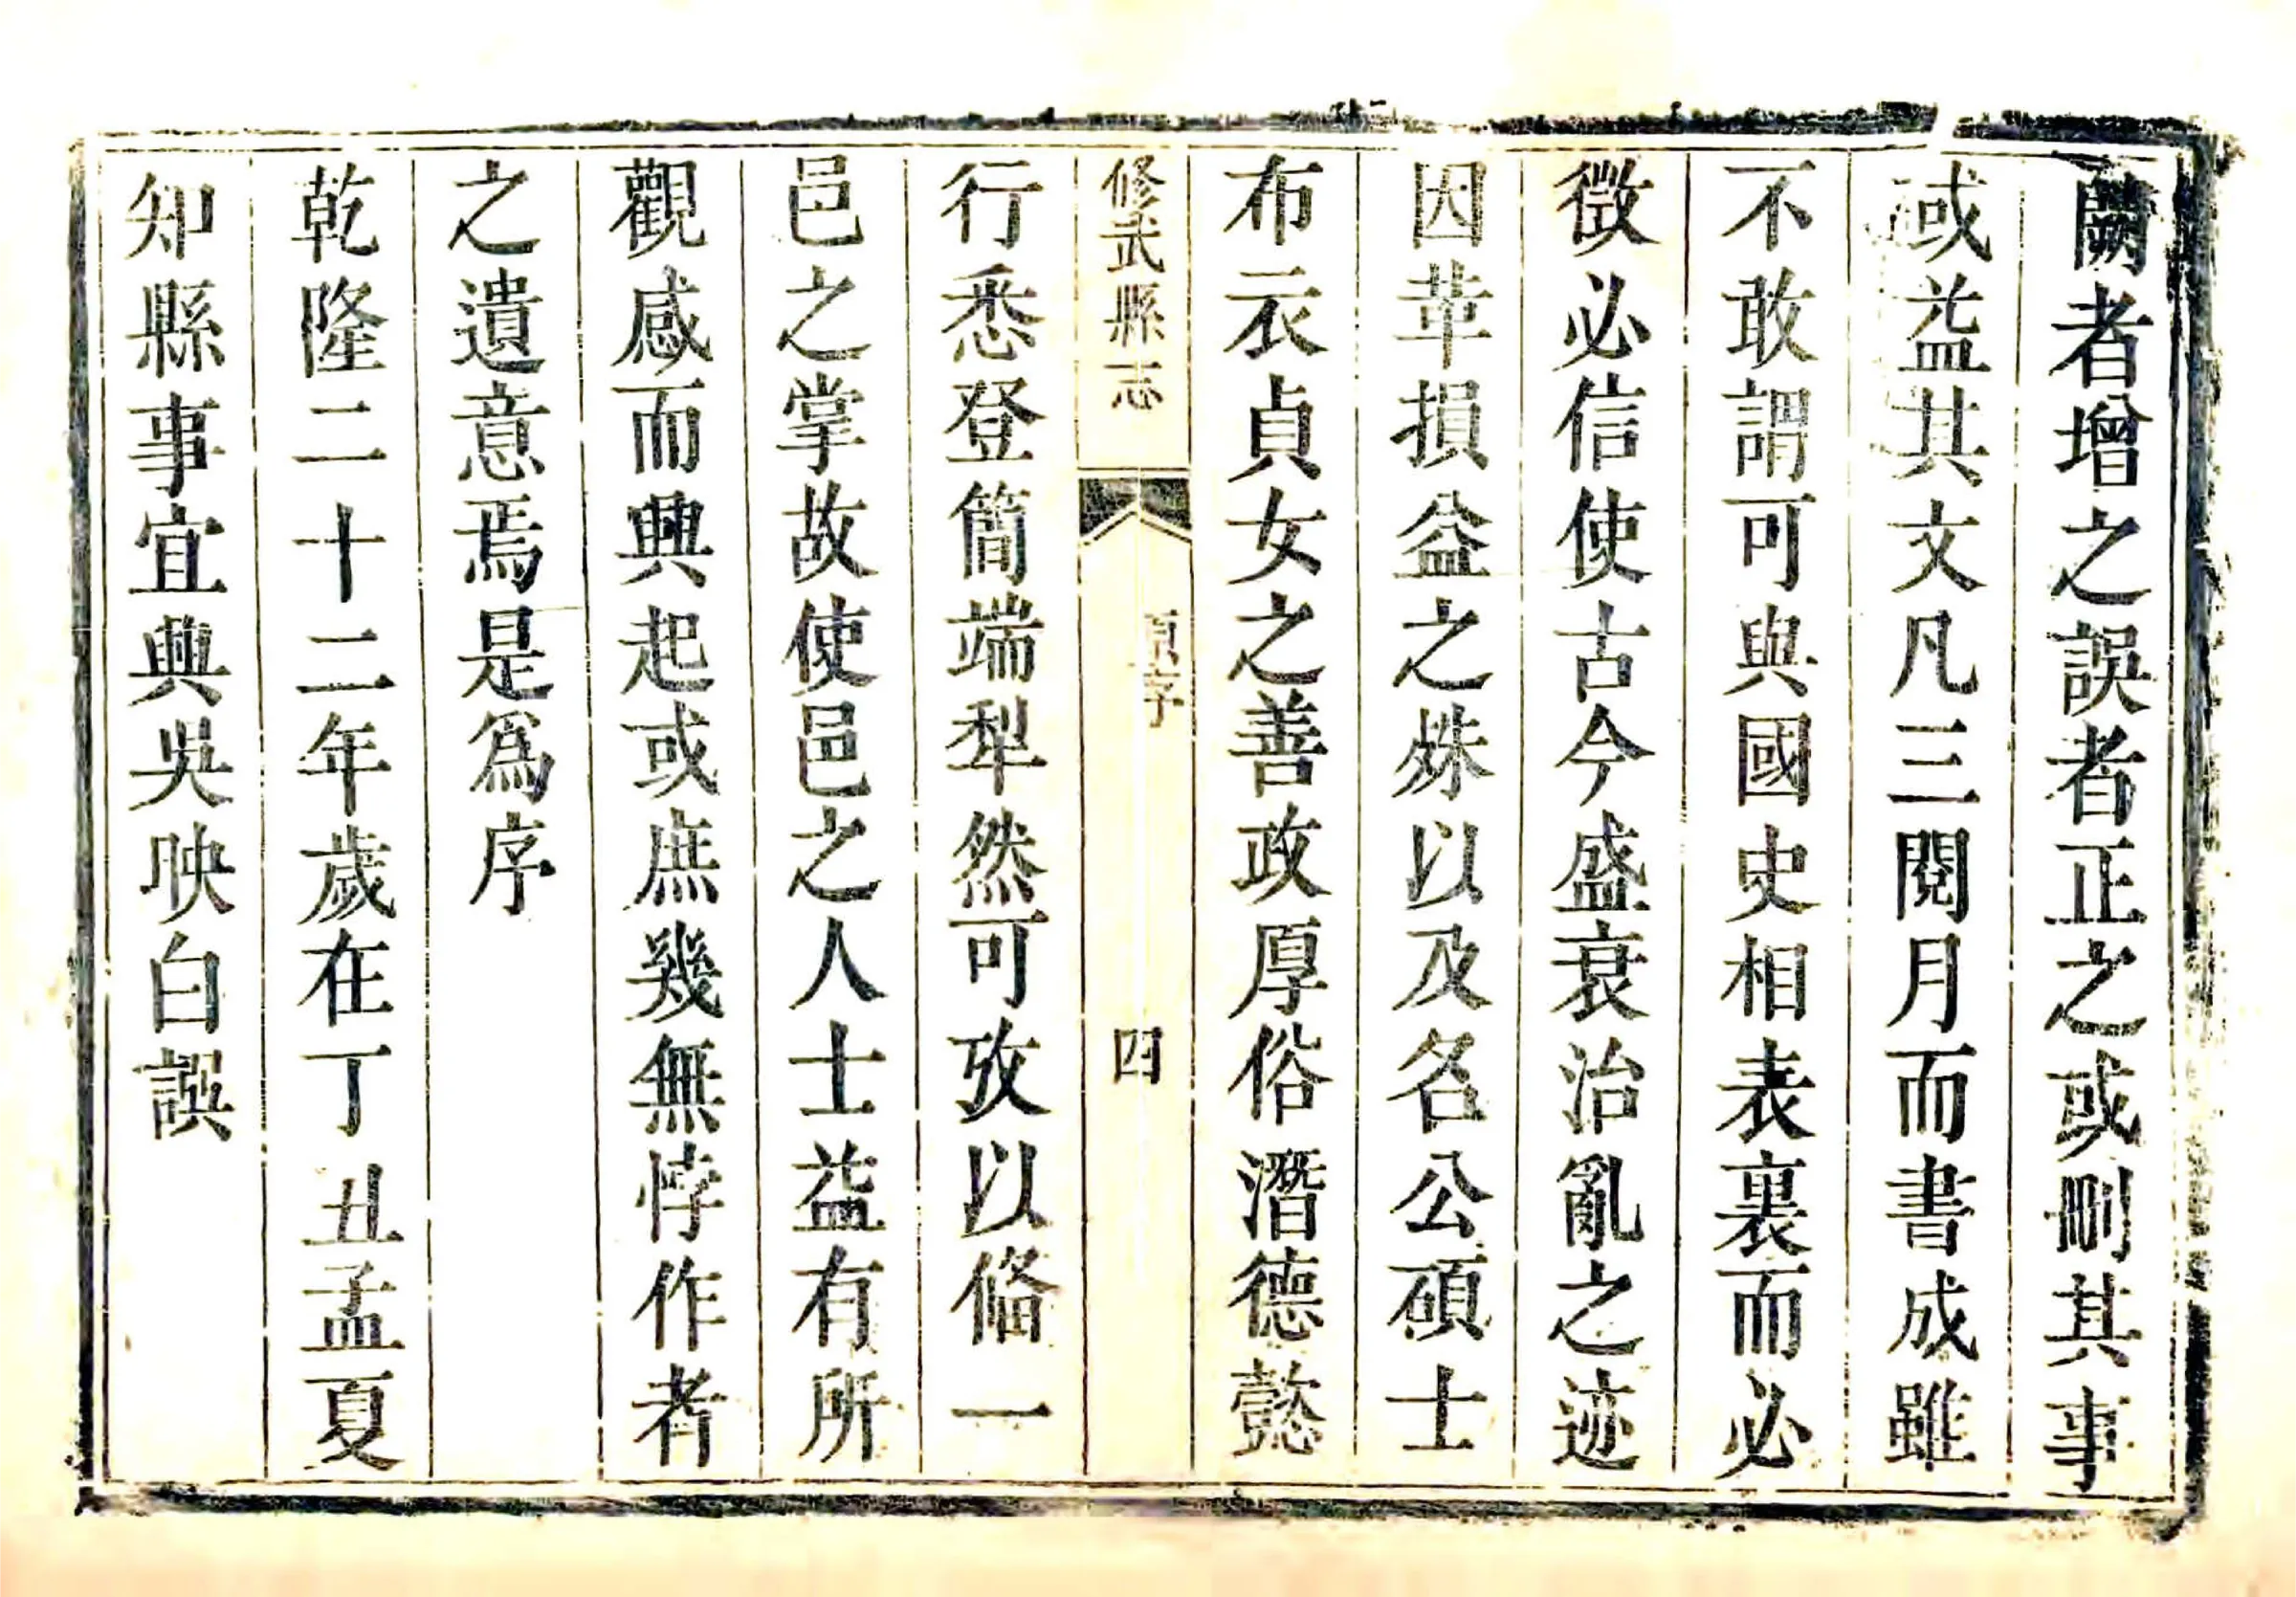 闕者增之誤者正之或刪其事
或益其文凡三閱月而書成雖
不敢謂可與國史相表裏而必
徵必信使古今盛衰治亂之迹
因革損益之殊以及名公碩士
布衣貞女之善政厚俗潛德懿
修武縣志
原序
四
行悉登簡端犁然可攷以俻一
邑之掌故使邑之人士益有所
觀感而興起或庶幾無悖作者
之遺意焉是爲序
乾隆二十二年歲在丁丑孟夏
知縣事宜興吳映白譔